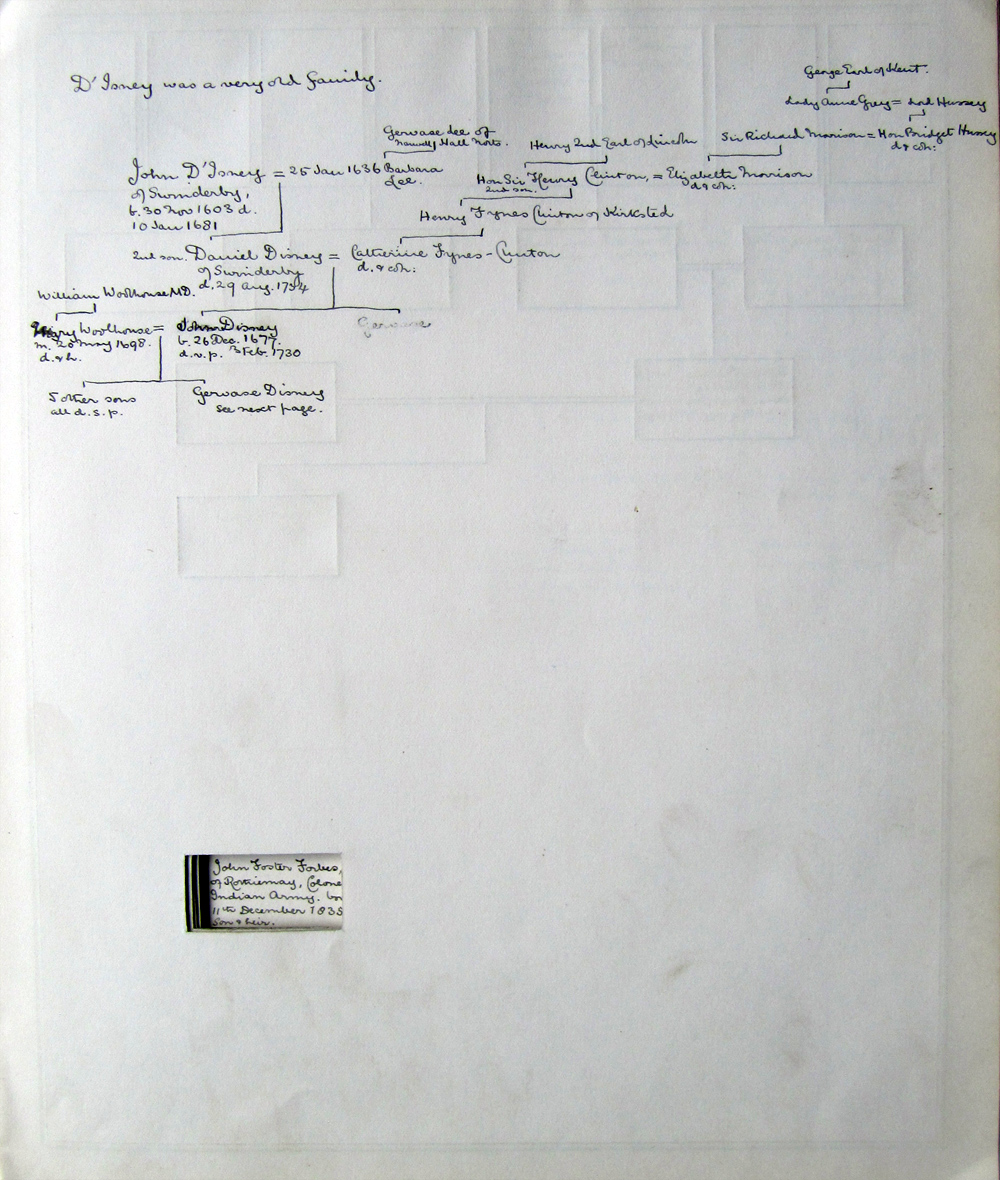 D'Isney was a very old family.
George Earl of Kent.
Lady Anne Grey = Lord Hussey
Gervase Lee of
Hall Notts.
Henry 2nd Earl of Lincoln
Sir Richard Morrison = Hon Bridget Hussey
d & coh:
John D'Isney = 25 Jan 1636 Barbara
Lee.
of Swinderby,
b. 30 Nov 1603 d.
10 Jan 1681
Hon Sir Henry Clinton, = Elizabeth Morrison
2nd son.
d & coh:
Henry Fynes Clinton of Kirksted
2nd son. Daniel Disney = Catherine Fynes-Clinton
of Swinderby
d. & coh:
d. 29 Aug. 1734
William Woolhouse M.D.
Mary Woolhouse = John Disney
m. 26 May 1698.
d. & h.
b. 26 Dec. 1677.
d.v.p. 3 Feb. 1730
Gervase
5 other sons
all d.s.p.
Gervase Disney
see next page.
John Foster Forbes,
of Rothiemay, Colone
Indian Army. bo
11th December 1835
Son & heir.